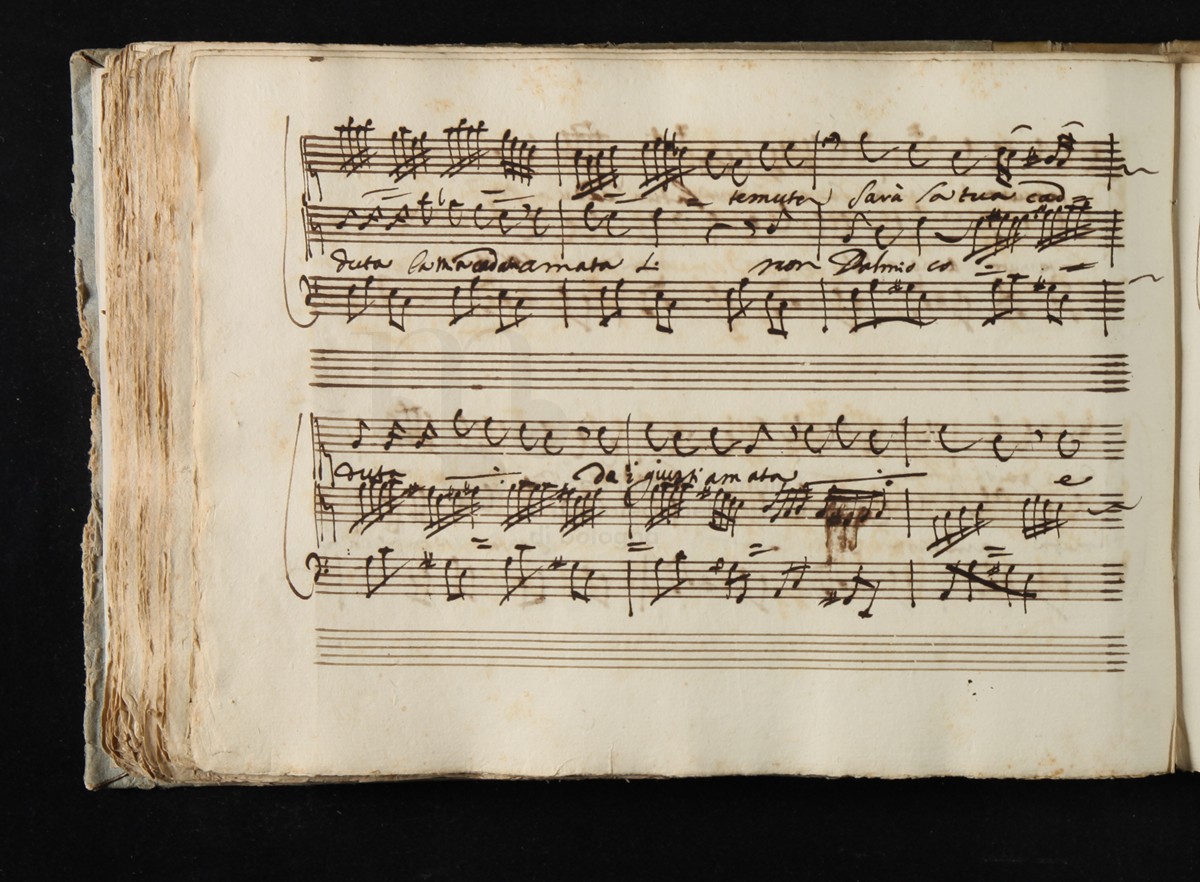 temuta Sarà la tua cad
duta la mia cad amata non Dalmio co
duta da i giusti amata e